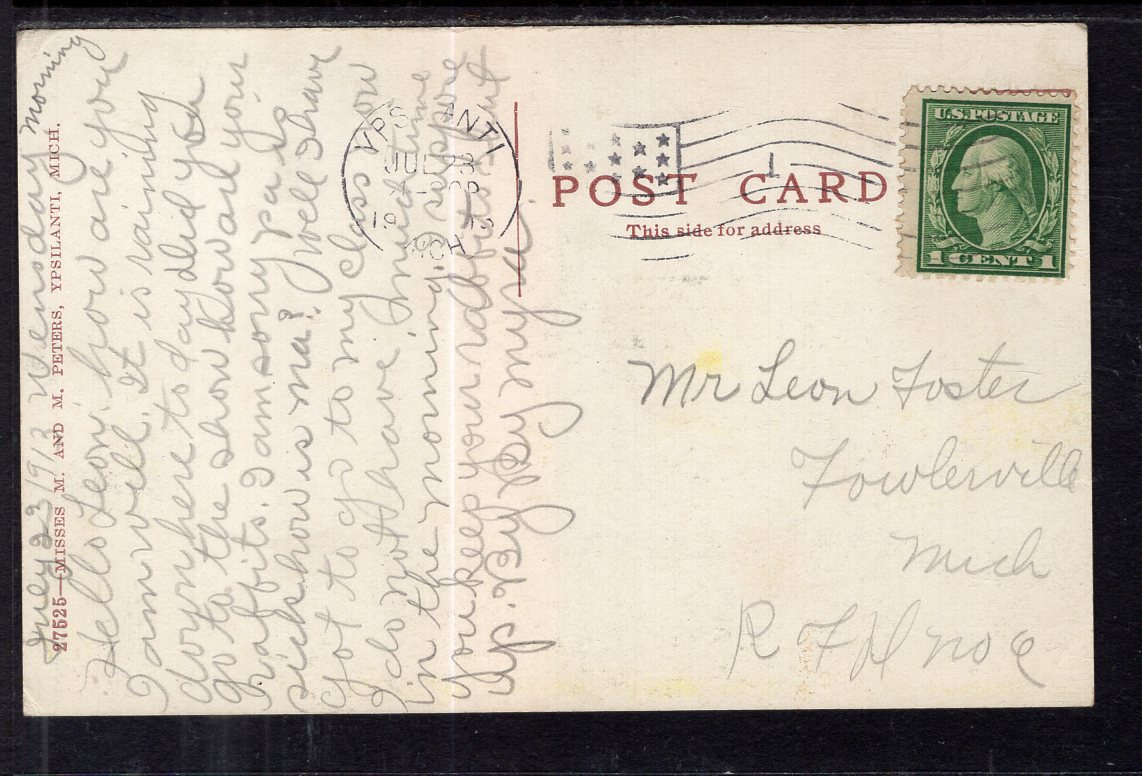 Juey 23 1913 Wensday Morning
Hello Leon. how are you
I am well. It is raining
down here to day dled you
go to the show How ar your
rabfits. I am sorry pa is
sick how is ma? Well I have
got to go to my Class now
I do not have Much time
in the morning. I supose
you keep your rabfits shut
up. By By Myra.
27525—MISSES M. AND M. PETERS, YPSILANTI, MICH.
YPSILANTI
JUL 23
19
MICH
1
POST CARD
This side for address
U.S. POSTAGE
1 CENT 1
Mr Leon Foster
Fowlerville
Mich
R F D no